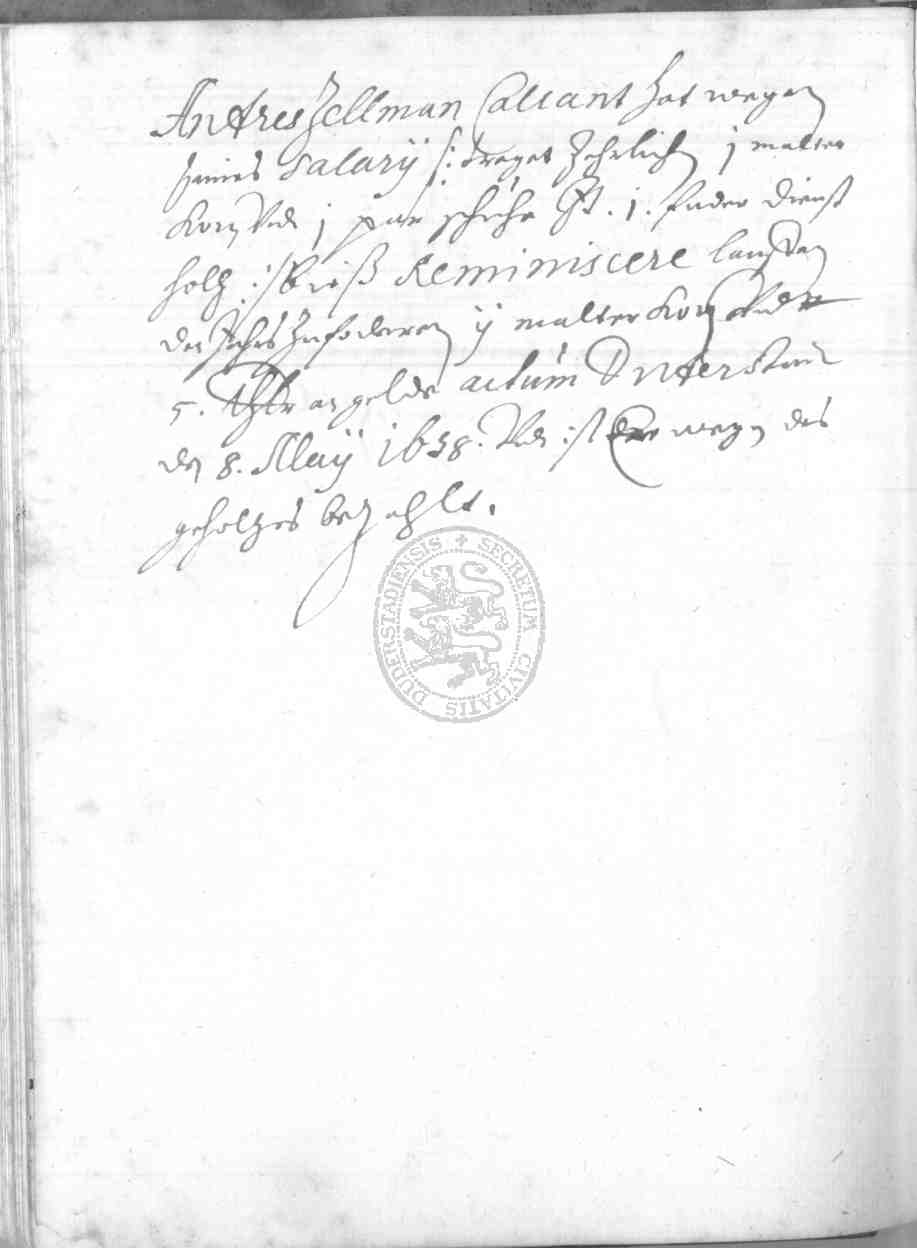 Andres Hellman Calcant hat wegen
seines Salarij /: traget Jehrlich j malter
Korn Vnd j par schuhe Ft. j. fuder dienst
holtz :/ biß Reminiscere lauffenden
des Jahrs zufoderen ij malter Korn Vnd
5. Thlr an gelde actum
den 8. Maij 1638. Vnd ist Er wegen des
geholtzes bezahlt.
SECRETUM CIVITATIS DUDERSTADIENSIS